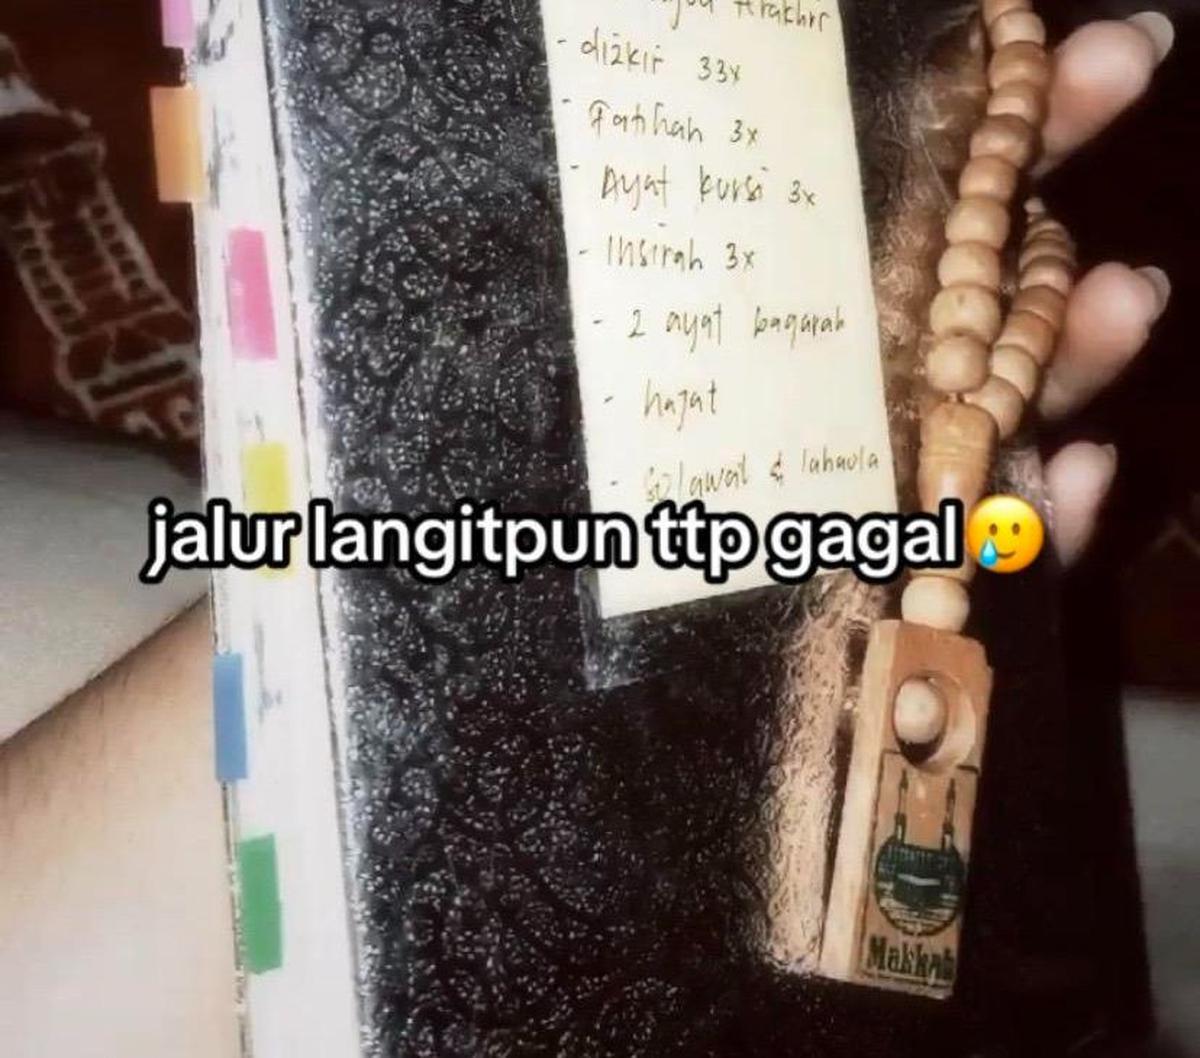 - dizkir 33x
- Fatihah 3x
- Ayat kursi 3x
- Insirah 3x
- 2 ayat baqarah
- hajat
- Solawat & lahaula
jalur langitpun ttp gagal🥲
Makkah